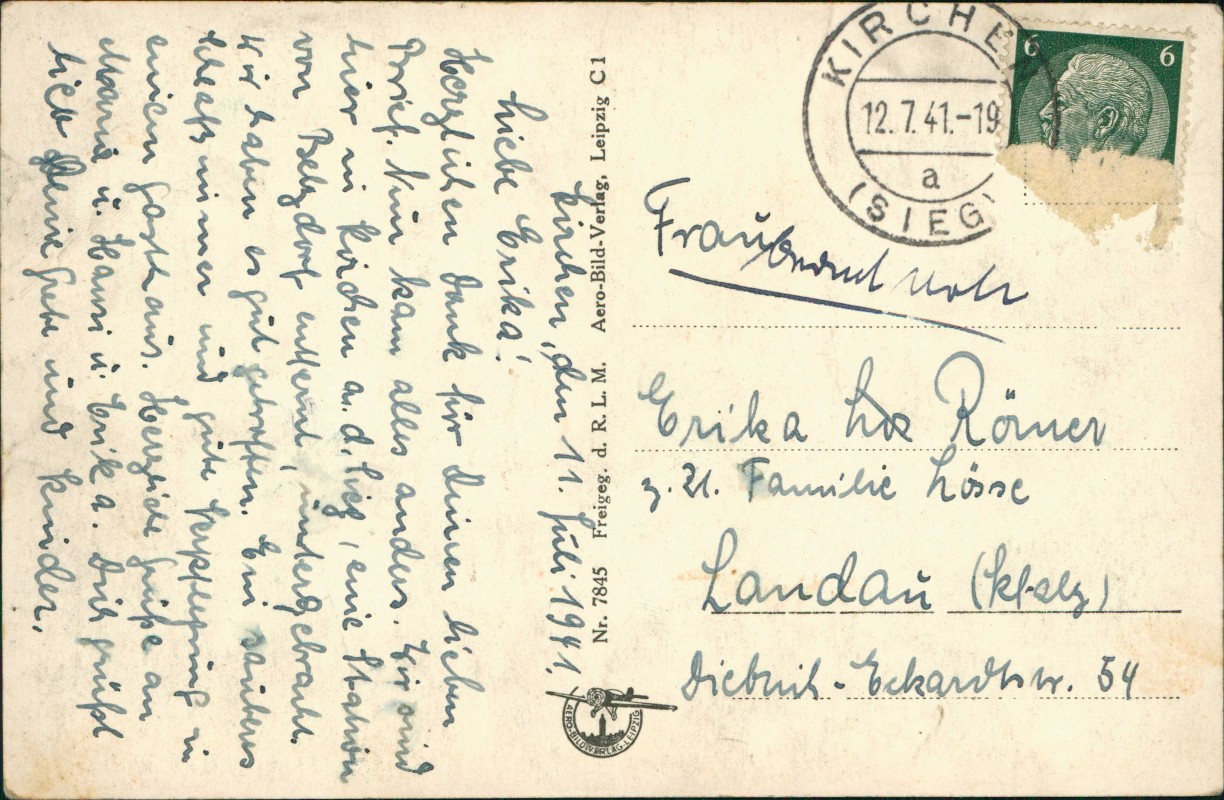 Kirchen, den 11. Juli 1941.
Liebe Erika!
Herzlichen Dank für Deinen lieben
Brief. Nun kam alles anders. Wir sind
hier in Kirchen a. d. Sieg, eine Station
von Betzdorf entfernt, untergebracht.
Wir haben es gut getroffen. Ein sauberes
Schlafzimmer und gute Verpflegung in
einem Gasthaus. Herzliche Grüße an
Mama u. Hansi u. Erika. Dich grüßt
lieb Deine Grete und Kinder.
Nr. 7845 Freigeg. d. R. L. M. Aero-Bild-Verlag, Leipzig C 1
AERO-BILD-VERLAG-LEIPZIG
KIRCHEN
12.7.41.-19
a
(SIEG)
6 6
Frau
Erika Römer
z. Zt. Familie Lösse
Landau (Pfalz)
54